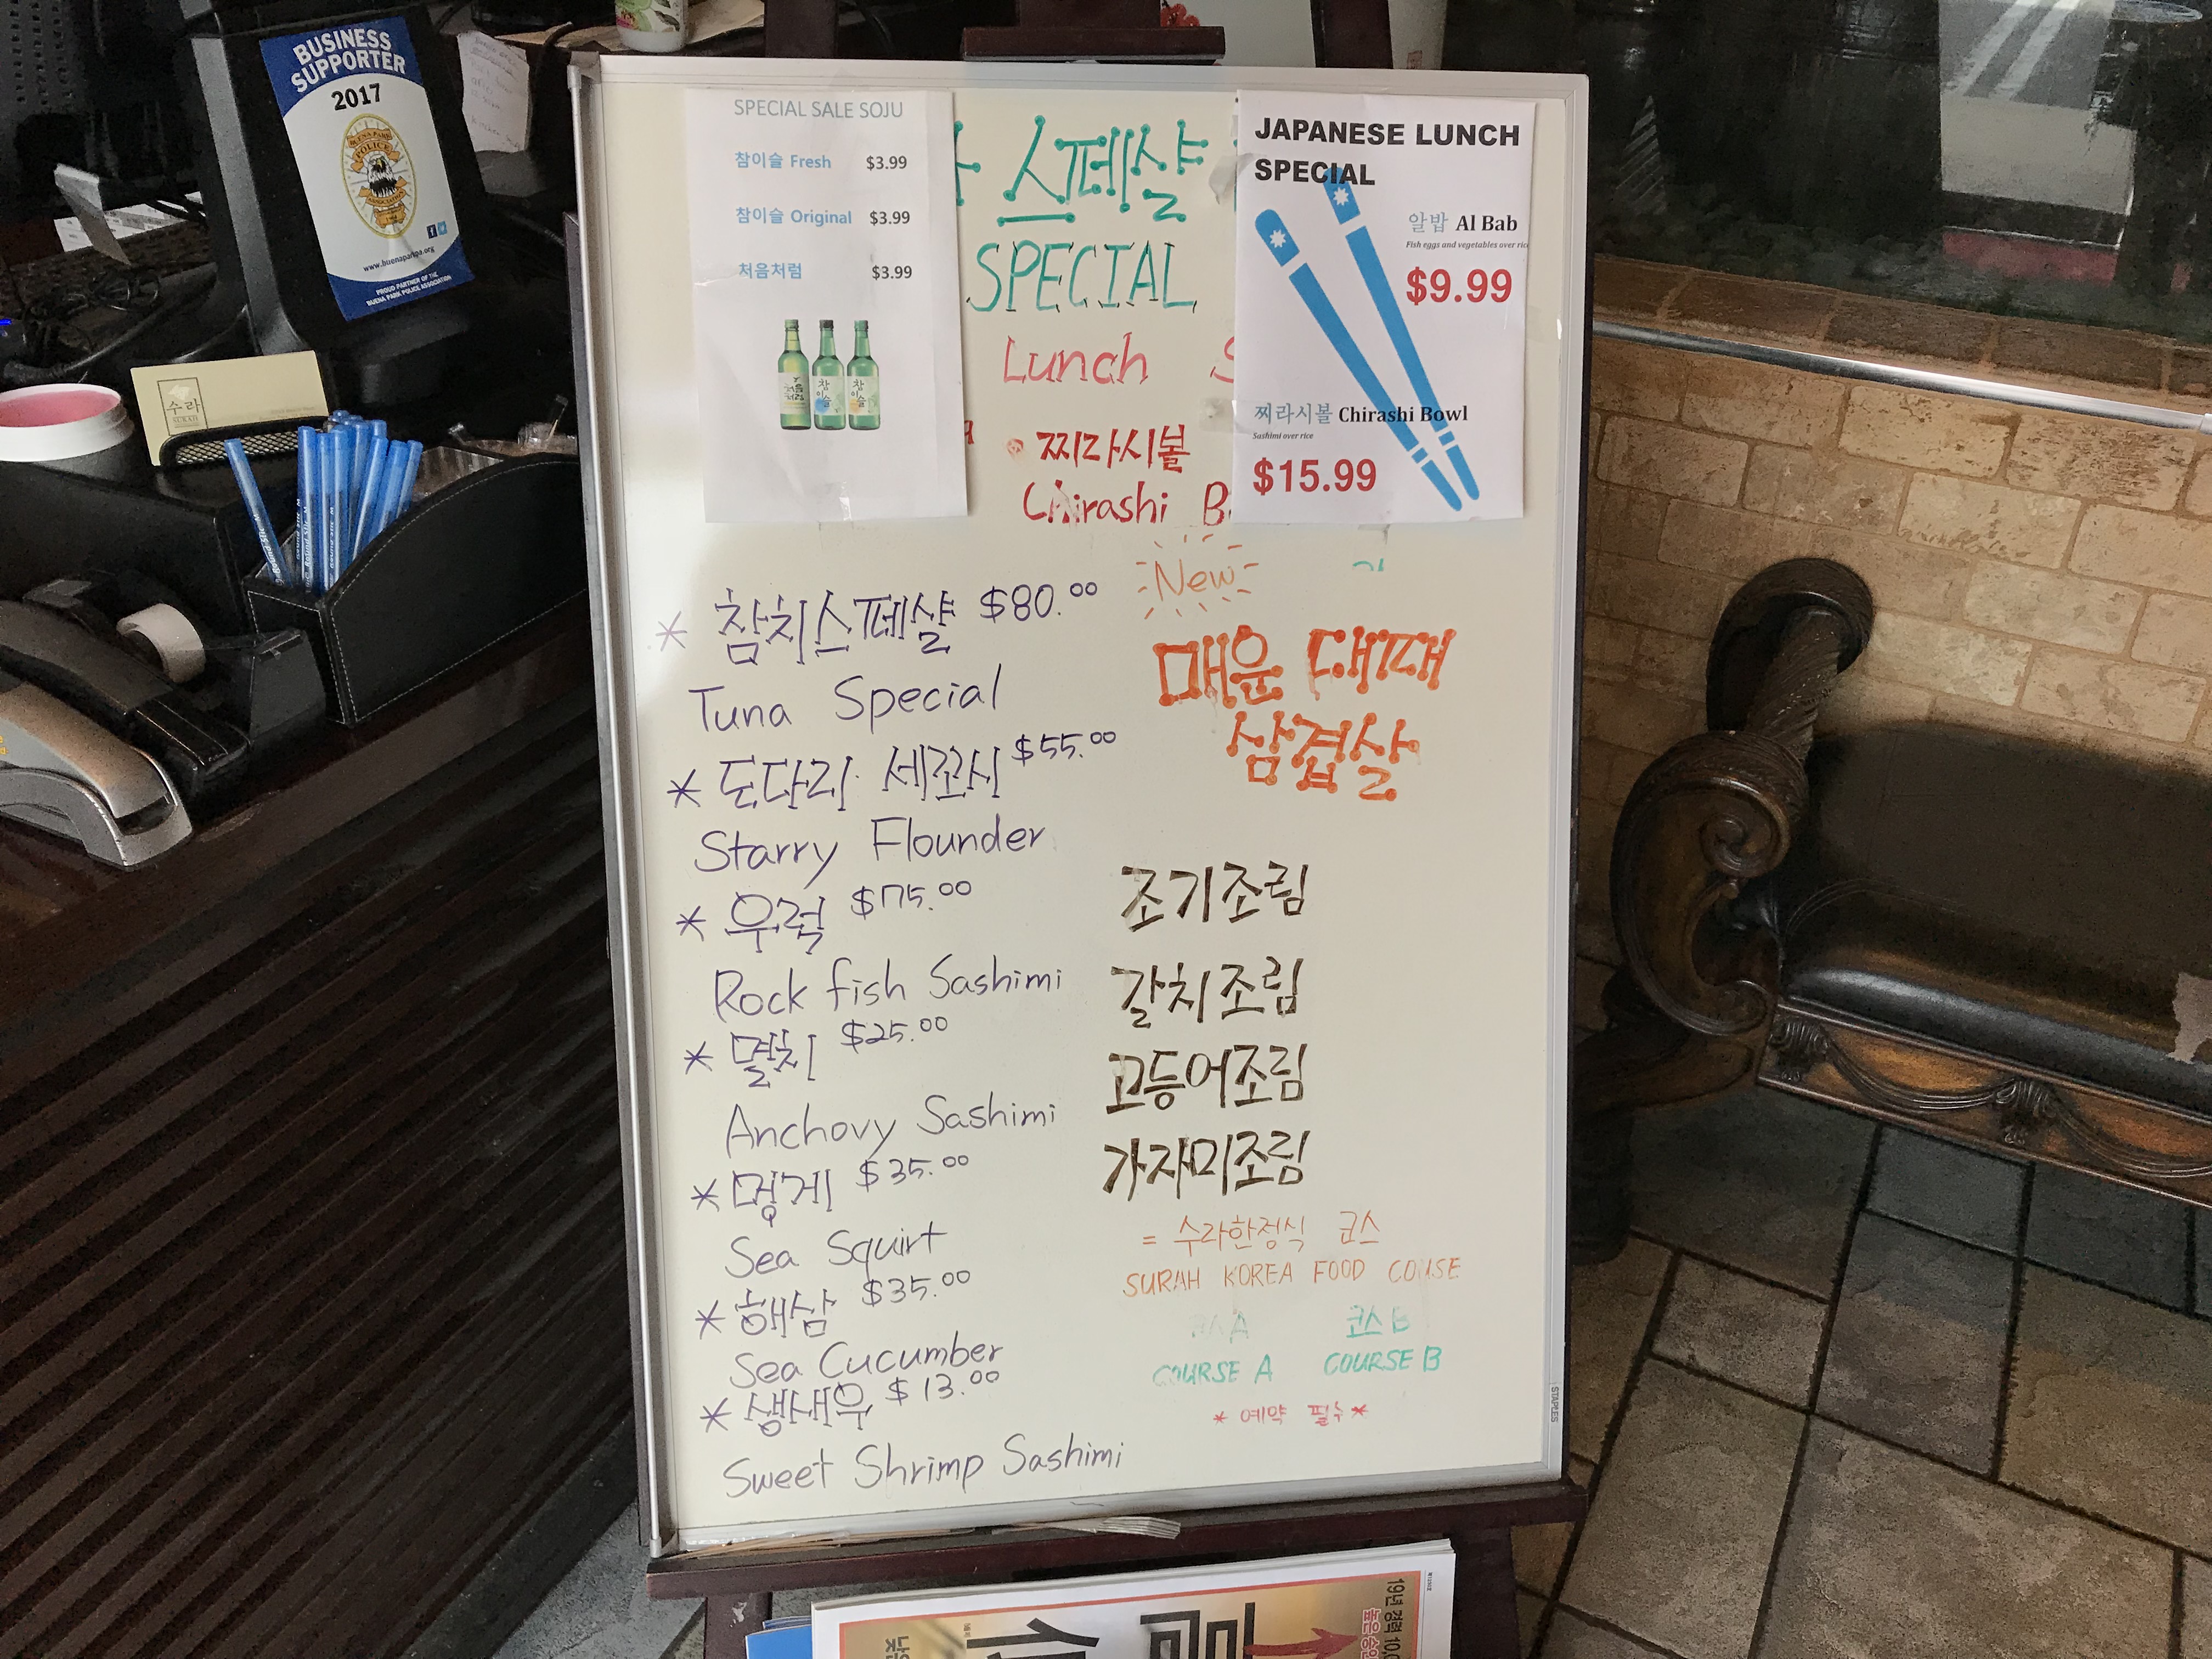 BUSINESS
SUPPORTER
2017
BUENA PARK
POLICE
ASSOCIATION
www.buenaparkpa.org
PROUD PARTNER OF THE
BUENA PARK POLICE ASSOCIATION
수라
SURAH
SPECIAL SALE SOJU
참이슬 Fresh $3.99
참이슬 Original $3.99
처음처럼 $3.99
처음처럼
참이슬
참이슬
스페샬
SPECIAL
Lunch S
찌라시볼
Chirashi B
JAPANESE LUNCH
SPECIAL
알밥 Al Bab
Fish eggs and vegetables over rice
$9.99
찌라시볼 Chirashi Bowl
Sashimi over rice
$15.99
* 참치스페샬 $80.00
Tuna Special
* 도다리 세꼬시 $55.00
Starry Flounder
* 우럭 $75.00
Rock fish Sashimi
* 멸치 $25.00
Anchovy Sashimi
* 멍게 $35.00
Sea Squirt
* 해삼 $35.00
Sea Cucumber
* 생새우 $13.00
Sweet Shrimp Sashimi
New
매운 대패
삼겹살
조기조림
갈치조림
고등어조림
가자미조림
= 수라한정식 코스
SURAH KOREA FOOD COUSE
코스 B
COURSE A COURSE B
* 예약 필수 *
STAPLES